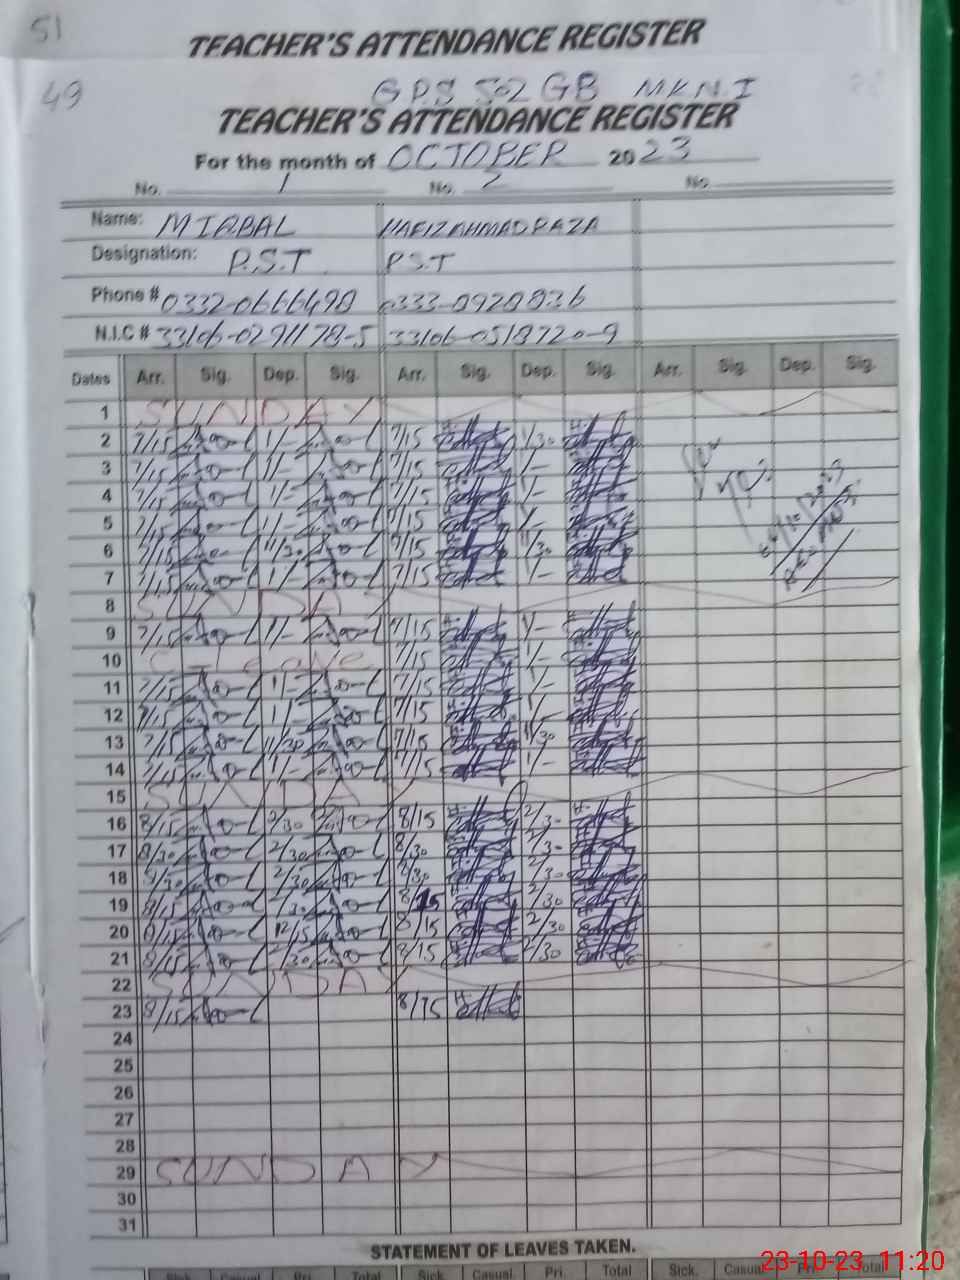 51
TEACHER'S ATTENDANCE REGISTER
49
GPS 502 GB MKN.I
TEACHER'S ATTENDANCE REGISTER
For the month of OCTOBER 2023
No. 1 No. 2 No.
Name: M IQBAL HAFIZ AHMAD RAZA
Designation: P.S.T P.S.T
Phone # 0332-0666490 0333-0920836
N.I.C # 33106-0291178-5 33106-0518720-9
Dates Arr. Sig. Dep. Sig. Arr. Sig. Dep. Sig. Arr. Sig. Dep. Sig.
1 SUNDAY
2 7/15 1/- 7/15 1/30
3 7/15 1/- 7/15 1/-
4 7/15 1/- 7/15 1/-
5 7/15 1/- 7/15 1/-
6 7/15 11/30 7/15 11/30
7 7/15 1/- 7/15 1/-
8 SUNDAY
9 7/15 1/- 7/15 1/-
10 C-Leave 7/15 1/-
11 7/15 1/- 7/15 1/-
12 7/15 1/- 7/15 1/-
13 7/15 11/30 7/15 11/30
14 7/15 1/- 7/15 1/-
15 SUNDAY
16 8/15 2/30 8/15 2/30
17 8/30 2/30 8/30 2/30
18 8/30 2/30 8/30 2/30
19 8/15 2/30 8/15 2/30
20 8/15 12/15 8/15 2/30
21 8/15 2/30 8/15 2/30
22 SUNDAY
23 8/15 8/15
24
25
26
27
28
29 SUNDAY
30
31
STATEMENT OF LEAVES TAKEN.
Sick Casual Pri. Total Sick. Casual. Pri. Total Sick. Casual Pri. Total
23-10-23 11:20